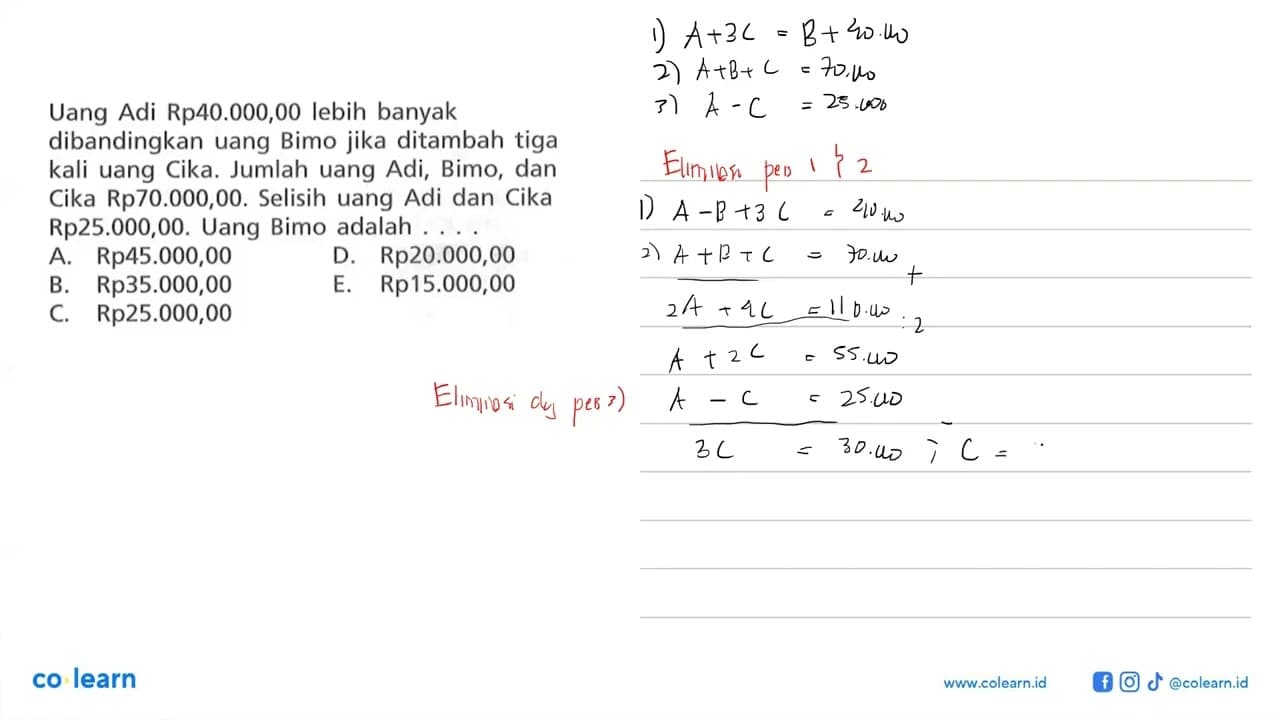 Uang Adi Rp40.000,00 lebih banyak
dibandingkan uang Bimo jika ditambah tiga
kali uang Cika. Jumlah uang Adi, Bimo, dan
Cika Rp70.000,00. Selisih uang Adi dan Cika
Rp25.000,00. Uang Bimo adalah . . . .
A. Rp45.000,00 D. Rp20.000,00
B. Rp35.000,00 E. Rp15.000,00
C. Rp25.000,00
1) A+3C = B+40.000
2) A+B+C = 70.000
3) A-C = 25.000
Eliminasi pers 1 & 2
1) A-B+3C = 40.000
2) A+B+C = 70.000 +
2A + 4C = 110.000 :2
A + 2C = 55.000
Eliminasi dg pers 3) A - C = 25.000 -
3C = 30.000 ; C =
co learn
www.colearn.id @colearn.id